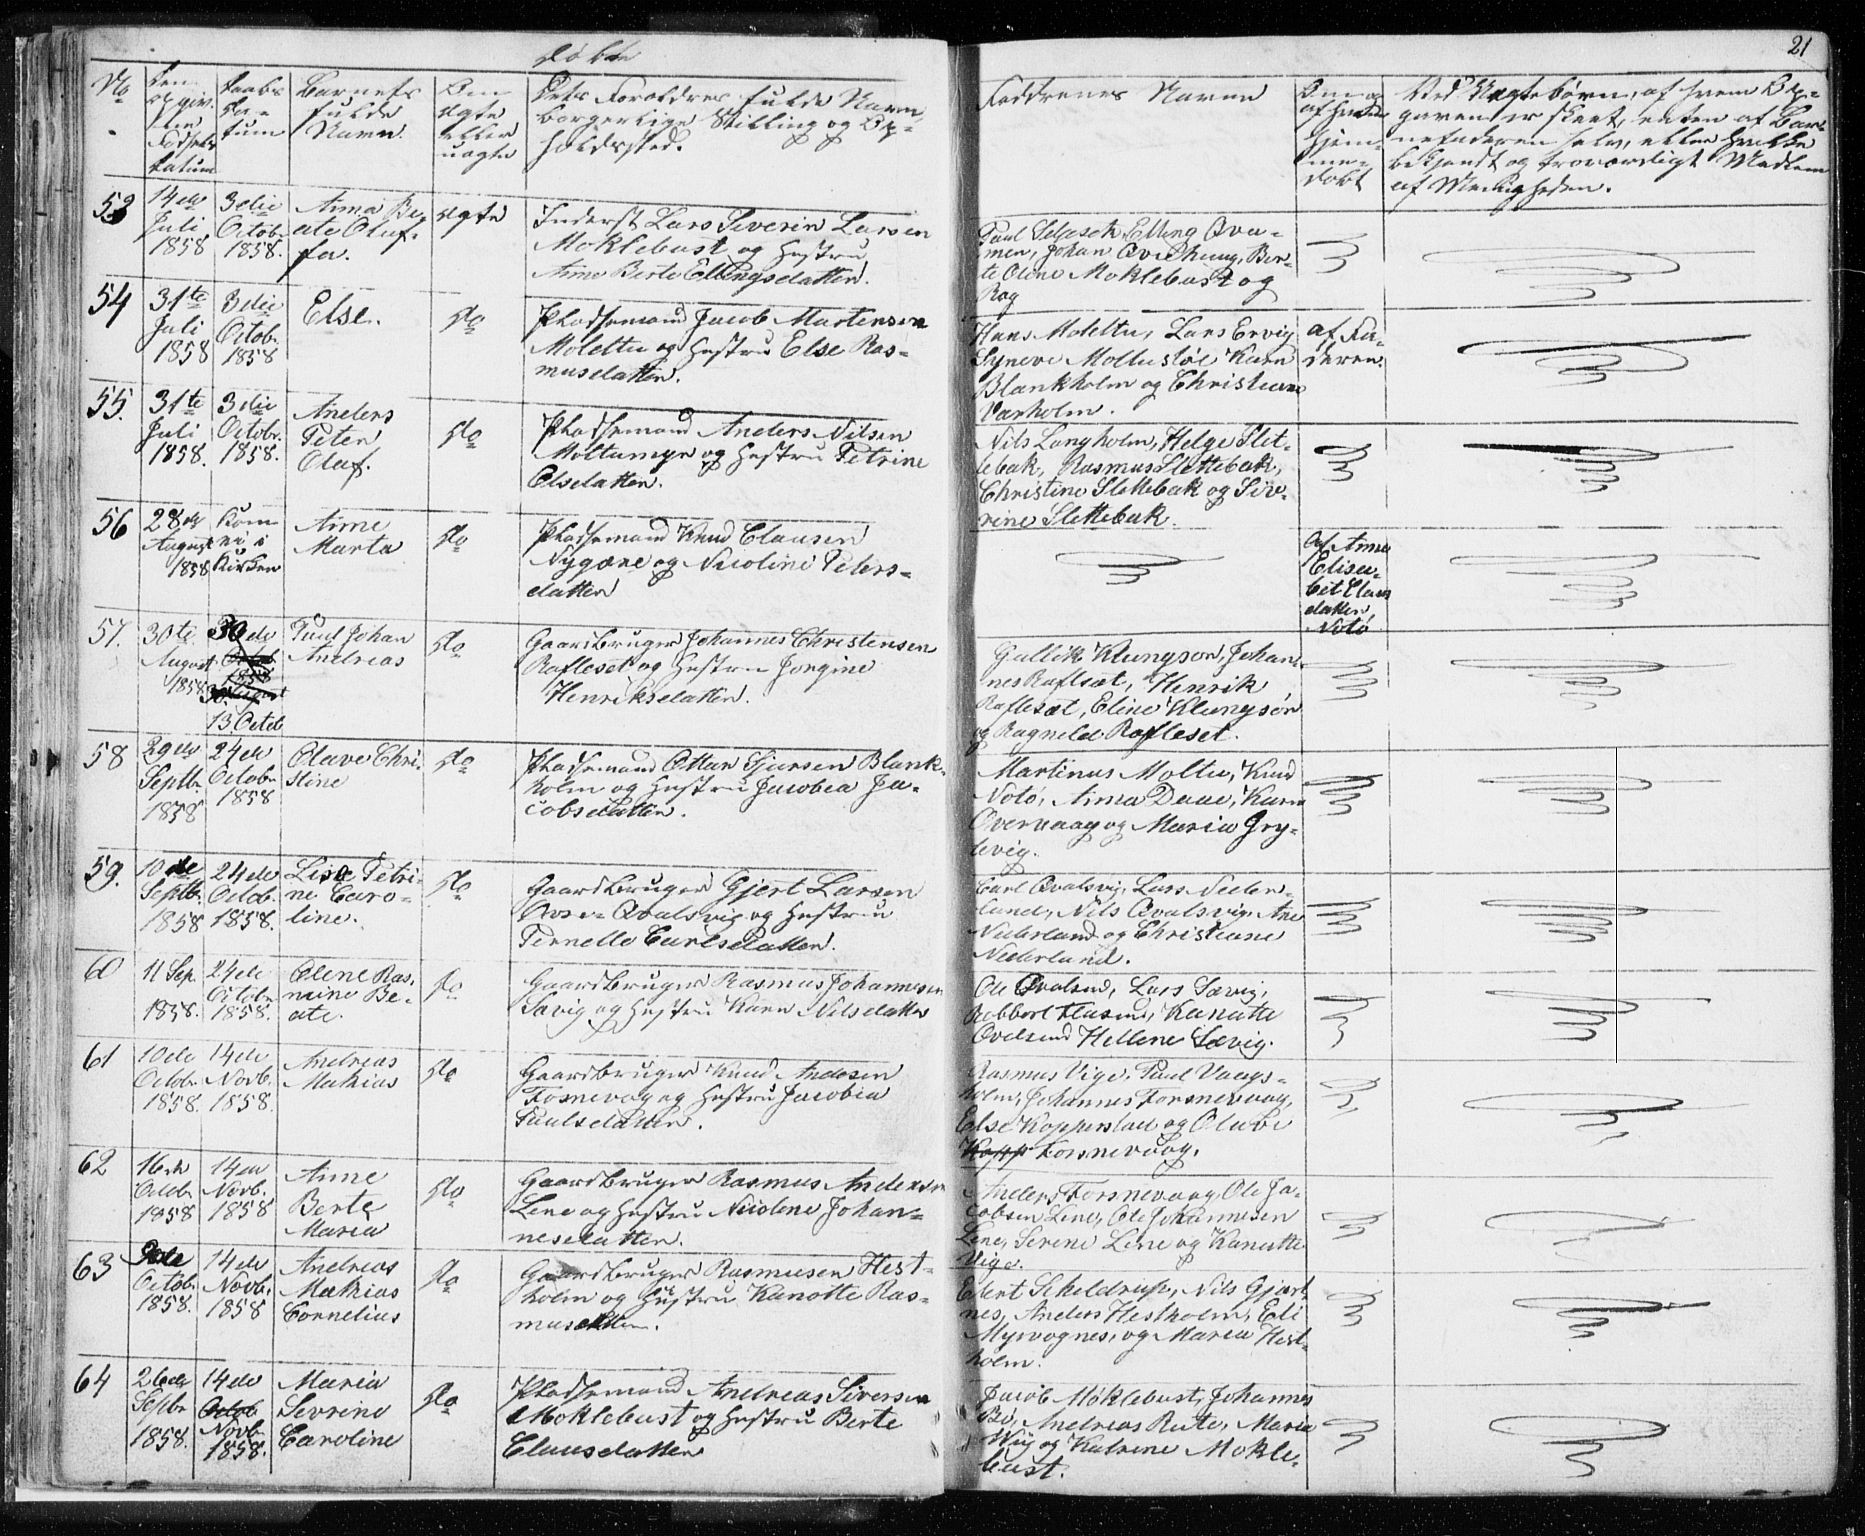 Døbte
21
No
Den opgivne Fødsels Datum
Daabs Datum
Barnets fulde Navn.
Om ægte eller uægte
Dets Forældres fulde Navn, borgerlige Stilling og Opholdssted.
Faddrenes Navne
Om og af hvem hjemmedøbt
Ved Uægtebørn, af hvem Opgaven er skeet, enten af Barnefaderen selv, eller hvilke bekjendt og troværdigt Medlem af Menigheden.
53
14de Juli 1858
3die Octobr. 1858.
Anna Beate Oluffa.
ægte
Inderst Lars Severin Larsen
Moklebust og Hustru
Anne Berte Ellingsdatter.
Paul Selesek, Elling Qva-
men, Johan Qvidhaug, Ber-
te Oline Moklebust og
Rog
54
31te Juli 1858
3die Octobr. 1858
Else.
do
Pladsemand Jacob Martenson
Molettu og Hustru Else Ras-
musdatter.
Hans Molettu, Lars Ervig
Syneve Mollustøle Karn
Blankholm og Christiane
Varholm.
af Fa-
deren.
55.
31te Juli 1858.
3die Octobr. 1858.
Anders
Peter
Oluf.
do
Pladsemand Anders Nilsen
Moltumyr og Hustru Petrine
Olsdatter.
Nils Langholm, Helge Slet-
tebak, Rasmus Slettebak,
Christine Slettebak og Sive-
rine Slettebak.
56
28de August 1858
Kom
ei i
Kirken
Anne
Marta
do
Pladsemand Knud Clausen
Nygane og Nicoline Peters-
datter
Af Anne
Elisa-
bet Claus
datter
Notø
57.
30te August 1858
30de
Octob
1858
30 August
13 Octob
Paul Johan
Andreas
do
Gaardbruger Johannes Christensen
Rafleset og Hustru Jorgine
Henriksdatter.
Gullik Klungsør, Johan-
nes Raflsæt, Henrik
Raflesæt, Eline Klungsør
og Ragnild Rafleset.
58
29de Septbr. 1858
24de Octobr. 1858
Olave Chri-
stine
do
Pladsemand Ottar Sjursen Blank-
holm og Hustru Jacobia Ja-
cobsdatter.
Martinus Moltu, Knud
Notø, Anna Daae, Karn
Overvaag og Maria Gry-
tevig.
59.
10de Septbr. 1858
24de Octob. 1858.
Lise Petri-
ne Caro-
line.
do
Gaardbruger Gjert Larsen
Øvre-Qvalsvig og Hustru
Pernelle Carlsdatter.
Carl Qvalsvig, Lars Neder-
land, Nils Qvalsvig, Ane
Nederland og Christiane
Nederland.
60
11 Sep. 1858.
24de Octobr. 1858.
Olene Ras-
mine Be-
ate.
do
Gaardbruger Rasmus Johannesen
Sævig og Hustru Karn Nilsdatter
Ole Qvalsund, Lars Sævig,
Robbert Flusund, Kanutte
Qvalsund Hellene Sævig.
61
10de Octobr. 1858.
14de Novb. 1858.
Andreas
Mathias
do
Gaardbruger Knud Andersen
Fosnevog og Hustru Jacobia
Paulsdatter.
Rasmus Vige, Paul Vaags-
holm, Johannes Forsnevaag,
Else Kopperstad og Olabe
Kopp Forsnevaag.
62
16de Octobr. 1858
14de Novb. 1858
Anne
Berte
Maria
do
Gaardbruger Rasmus Andersen
Lene og Hustru Nicolene Johan-
nesdatter.
Anders Forsnevaag, Ole Ja-
cobsen Line, Ole Johannesen
Line, Serine Line og Kanutte
Vige.
63
9de Octobr. 1858.
14de Novb. 1858
Andreas
Mathias
Cornelius
do
Gaardbruger Rasmusen Hest-
holm og Hustru Kanotte Ras-
musdatter.
Ebert Scheldrup, Nils Gjært-
nes, Anders Hestholm, Eli
Myrvognes, og Maren Hest-
holm.
64
26de Sepbr 1858.
14de
Octob
Novb. 1858.
Maria
Sevrine
Caroline
do
Pladsemand Andreas Siversen
Moklebust og Hustru Berte
Clausdatter
Jacob Møklebust, Johannes
Bø, Andreas Rute, Maria
Wiig og Katrine Mokle-
bust.